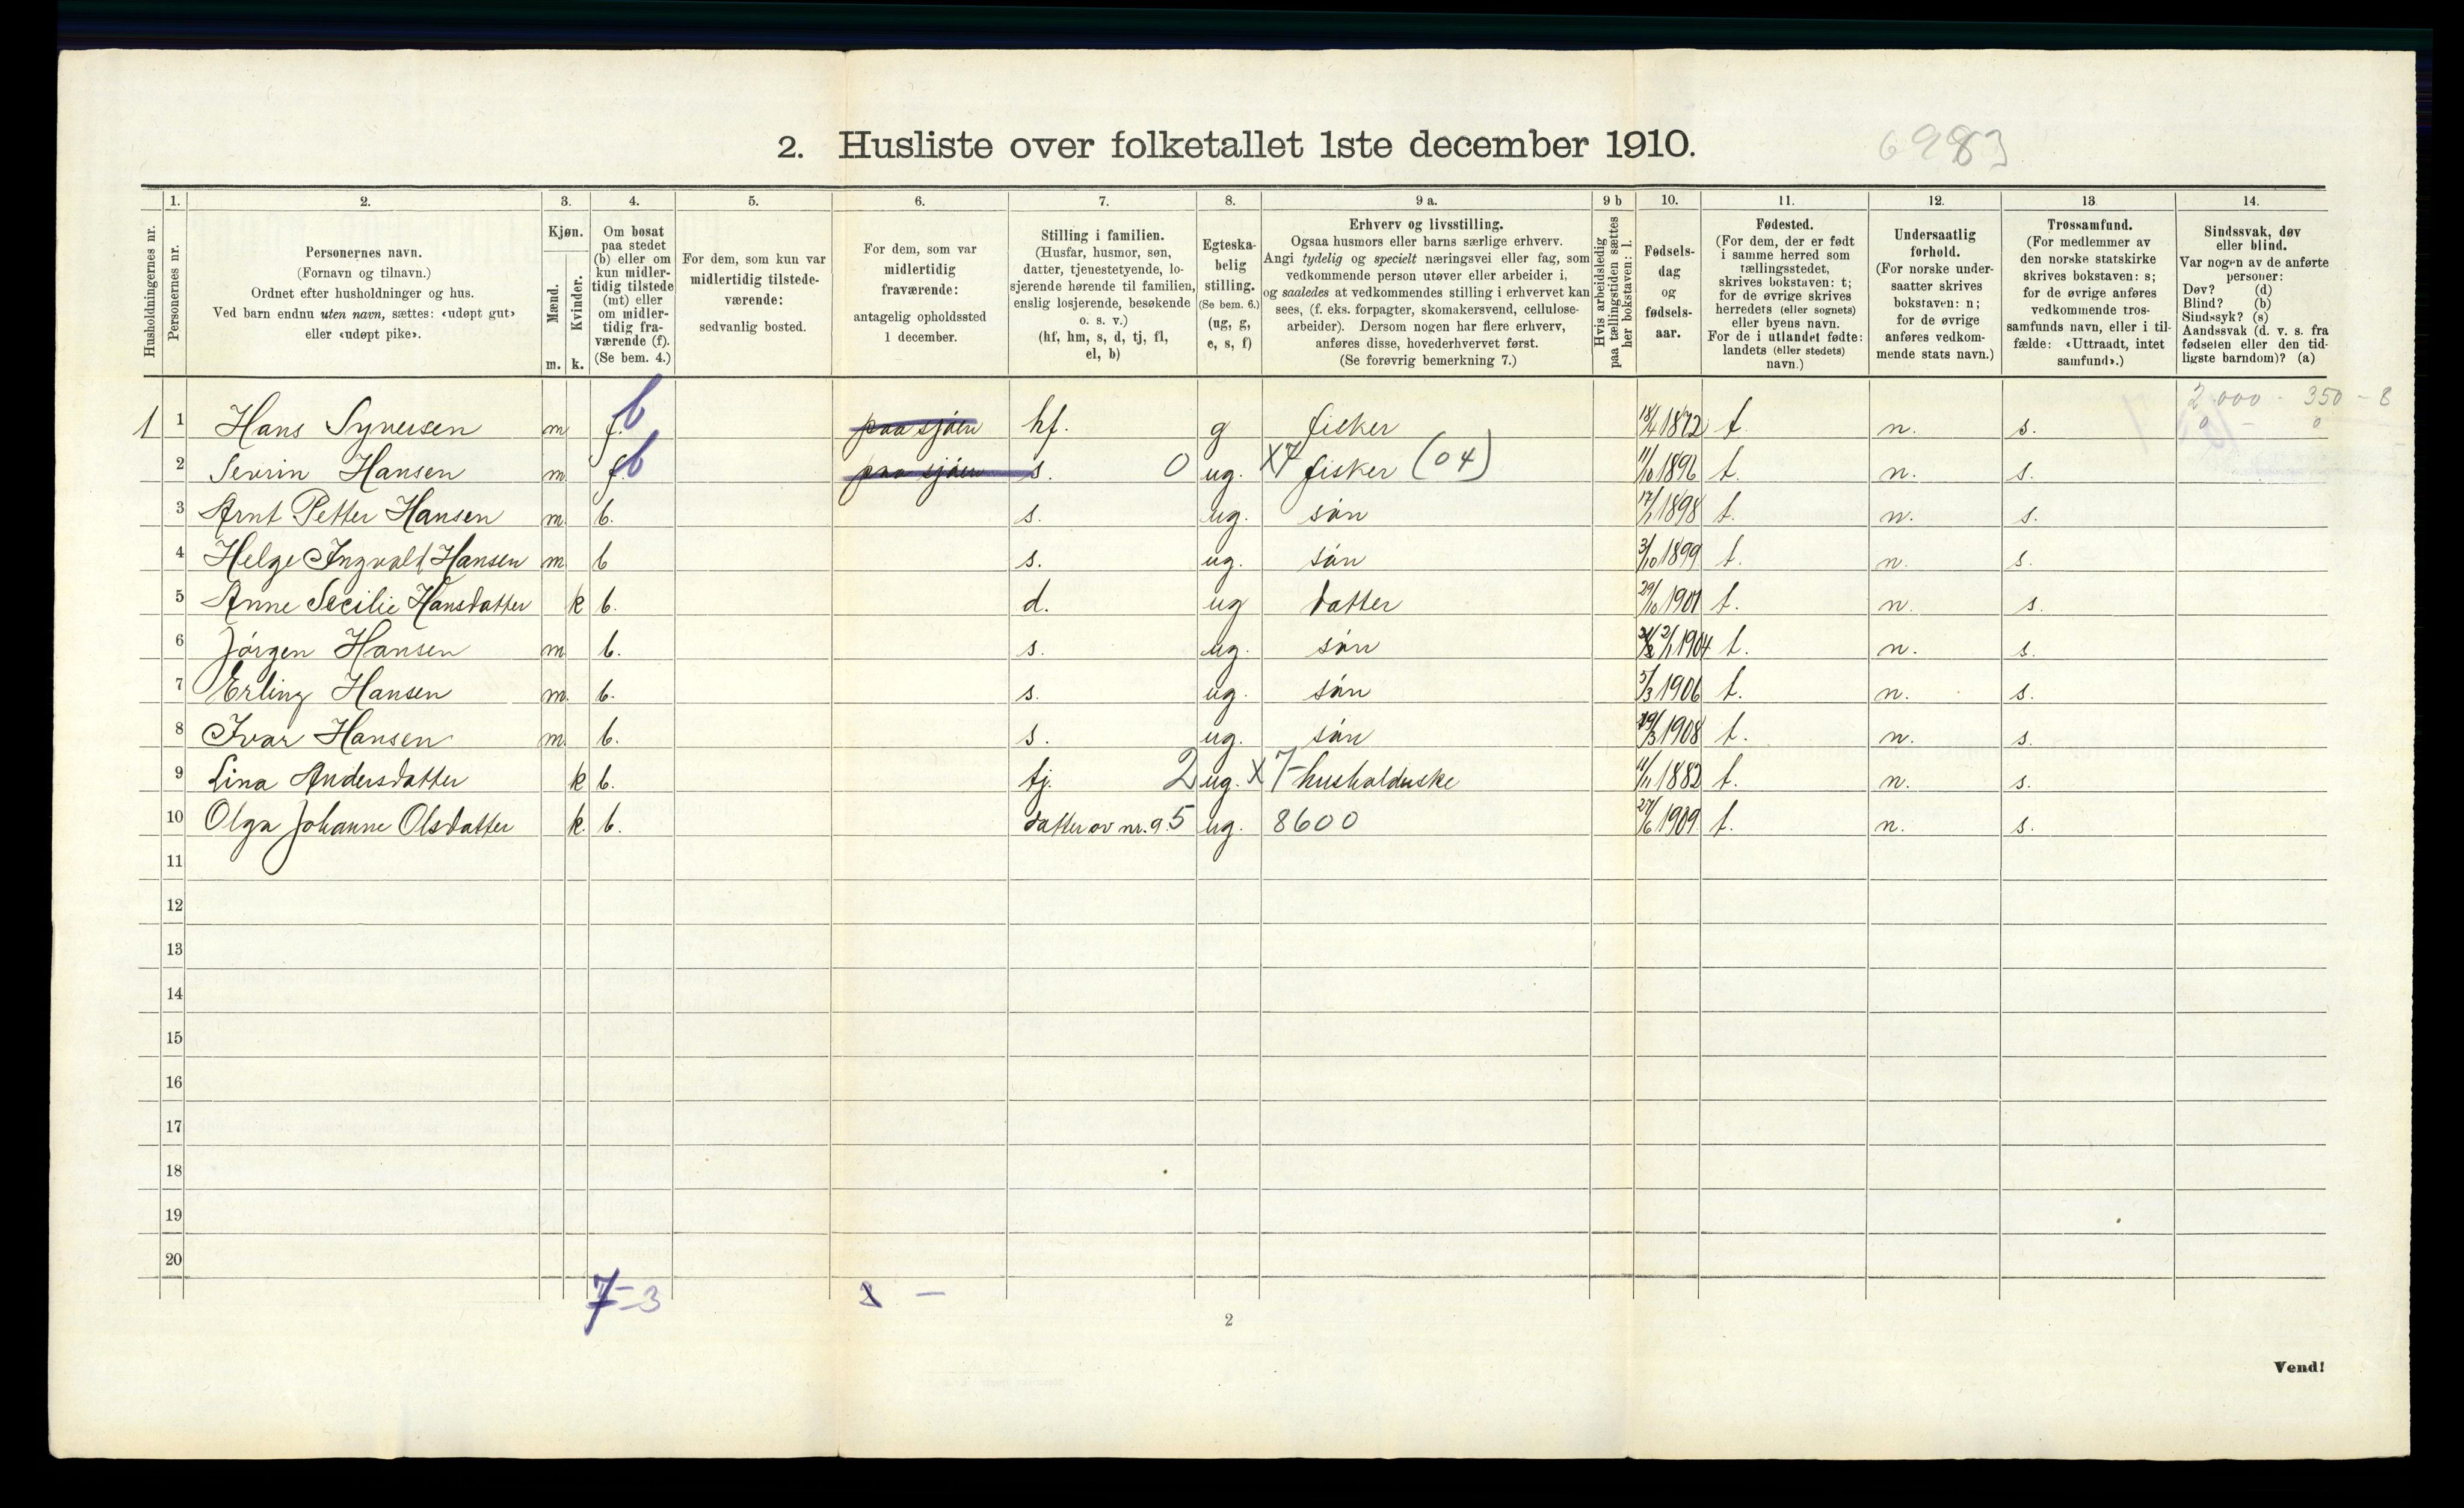 2. Husliste over folketallet 1ste december 1910.
6983
Husholdningernes nr.
1.
Personernes nr.
2.
Personernes navn.
(Fornavn og tilnavn.)
Ordnet efter husholdninger og hus.
Ved barn endnu uten navn, sættes: «udøpt gut»
eller «udøpt pike».
3.
Kjøn.
Mænd.
Kvinder.
m. k.
4.
Om bosat
paa stedet
(b) eller om
kun midler-
tidig tilstede
(mt) eller
om midler-
tidig fra-
værende (f).
(Se bem. 4.)
5.
For dem, som kun var
midlertidig tilstede-
værende:
sedvanlig bosted.
6.
For dem, som var
midlertidig
fraværende:
antagelig opholdssted
1 december.
7.
Stilling i familien.
(Husfar, husmor, søn,
datter, tjenestetyende, lo-
sjerende hørende til familien,
enslig losjerende, besøkende
o. s. v.)
(hf, hm, s, d, tj, fl,
el, b)
8.
Egteska-
belig
stilling.
(Se bem. 6.)
(ug, g,
e, s, f)
9 a.
Erhverv og livsstilling.
Ogsaa husmors eller barns særlige erhverv.
Angi tydelig og specielt næringsvei eller fag, som
vedkommende person utøver eller arbeider i,
og saaledes at vedkommendes stilling i erhvervet kan
sees, (f. eks. forpagter, skomakersvend, cellulose-
arbeider). Dersom nogen har flere erhverv,
anføres disse, hovederhvervet først.
(Se forøvrig bemerkning 7.)
9 b
Hvis arbeidsledig
paa tællingstiden sættes
her bokstaven: l.
10.
Fødsels-
dag
og
fødsels-
aar.
11.
Fødested.
(For dem, der er født
i samme herred som
tællingsstedet,
skrives bokstaven: t;
for de øvrige skrives
herredets (eller sognets)
eller byens navn.
For de i utlandet fødte:
landets (eller stedets)
navn.)
12.
Undersaatlig
forhold.
(For norske under-
saatter skrives
bokstaven: n;
for de øvrige
anføres vedkom-
mende stats navn.)
13.
Trossamfund.
(For medlemmer av
den norske statskirke
skrives bokstaven: s;
for de øvrige anføres
vedkommende tros-
samfunds navn, eller i til-
fælde: «Uttraadt, intet
samfund».)
14.
Sindssvak, døv
eller blind.
Var nogen av de anførte
personer:
Døv? (d)
Blind? (b)
Sindssyk? (s)
Aandssvak (d. v. s. fra
fødselen eller den tid-
ligste barndom)? (a)
2.000 - 350 - 8
0 - 0
1 1 Hans Syversen m f. b paa sjøen hf. g fisker 18/4 1872 t n. s.
2 Sevrin Hansen m f. b paa sjøen s. 0 ug. X7 fisker (04) 11/10 1896 t. n. s.
3 Arnt Petter Hansen m b. s. ug. søn 17/1 1898 t. n. s.
4 Helge Ingvald Hansen m b s. ug. søn 3/10 1899 t. n. s.
5 Anne Secilie Hansdatter k b. d. ug datter 29/10 1901 t. n. s.
6 Jørgen Hansen m b. s. ug. søn 2/1 1904 t. n. s.
7 Erling Hansen m. b. s. ug. søn 5/3 1906 t. n. s.
8 Ivar Hansen m. b. s. ug. søn 29/3 1908 t. n. s.
9 Lina Andersdatter k b. tj. 2 ug. X 7- husholderske 11/11 1882 t. n. s.
10 Olga Johanne Olsdatter k. b. datter av nr. 9. 5 ug. 8600 27/6 1909 t. n. s.
11
12
13
14
15
16
17
18
19
20
7-3 -
2
Vend!